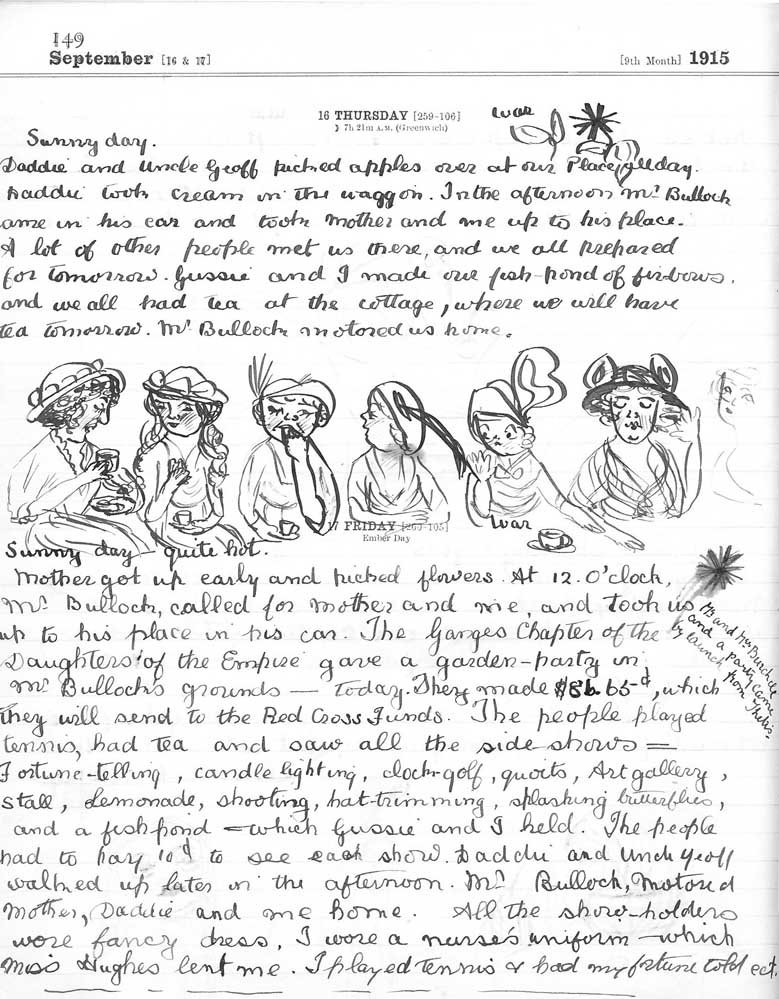 149
September [16 & 17] [9th Month] 1915
16 THURSDAY [259-106]
☽ 7h 21m A.M. (Greenwich)
war
Sunny day.
Daddie and Uncle Geoff picked apples over at our Place, all day.
Daddie took cream in the waggon. In the afternoon Mr Bullock
ame in his car and took Mother and me up to his place.
A lot of other people met us there, and we all prepared
for tomorrow. Gussie and I made our fish-pond of fir-bows.
and we all had tea at the cottage, where we will have
tea tomorrow. Mr Bullock motored us home.
17 FRIDAY [260-105]
Ember Day
war
Sunny day - quite hot.
Mother got up early and picked flowers. At 12. O'clock,
Mr Bullock, called for Mother and me, and took us
up to his place in his car. The Ganges Chapter of the
Daughters of the Empire gave a garden-party in
Mr Bullock's grounds — today. They made $86.65, which
they will send to the Red Cross Funds. The people played
tennis, had tea and saw all the side-shows =
Fortune-telling, candle lighting, clock-golf, quoits, Art gallery,
stall, Lemonade, shooting, hat-trimming, splashing butterflies,
and a fishpond - which Gussie and I held. The people
had to pay 10d to see each show. Daddie and Uncle Geoff
walked up later in the afternoon. Mr Bullock, Motored
Mother, Daddie and me home. All the show-holders
wore fancy dress, I wore a nurse's uniform - which
Miss Hughes lent me. I played tennis & had my fortune told ect.
Mr and Mrs
and a party came
by launch from Thetis.